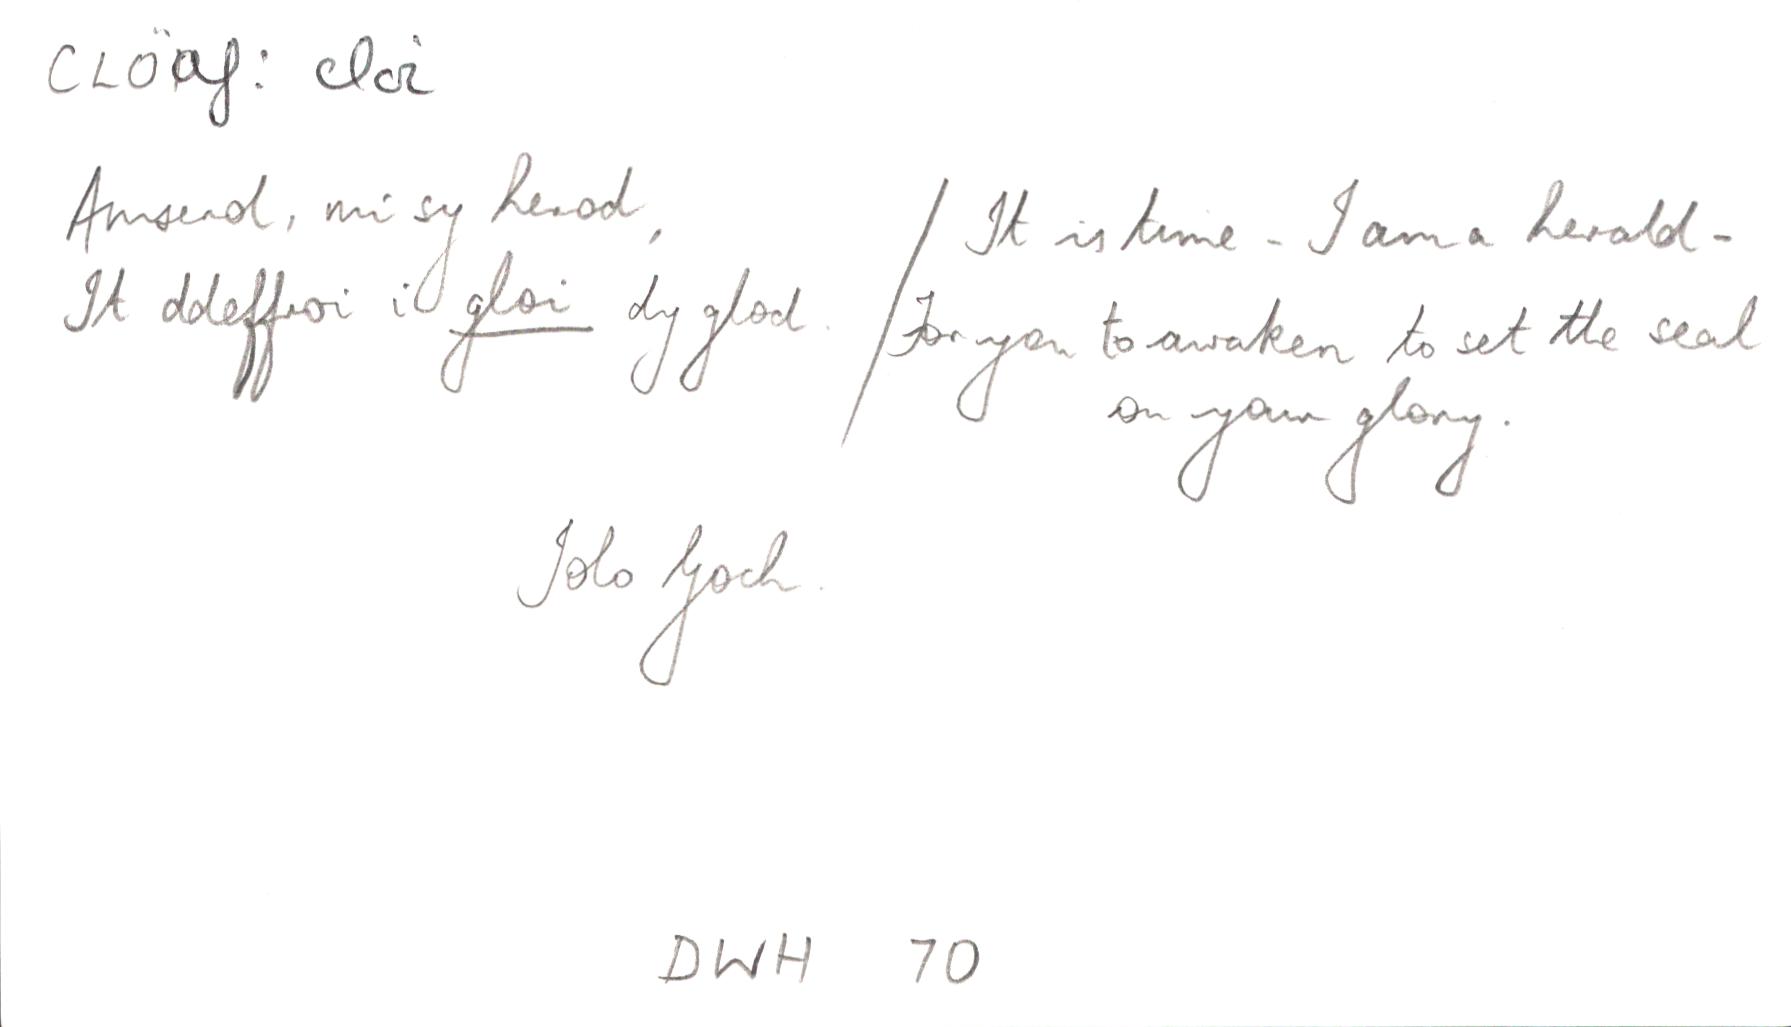 CLÖAF: cloi
Amserol, mi sy herod,
It ddeffroi i gloi dy glod.
/ It is time - I am a herald -
/ For you to awaken to set the seal
on your glory.
Iolo Goch.
DWH 70